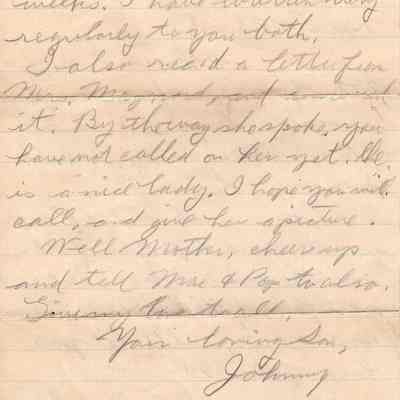 weeks. I have written very
regularly to you both.
I also rec'd a letter from
Mrs. Maynard, and answered
it. By the way she spoke, you
have not called on her yet. She
is a nice lady. I hope you will
call, and give her a picture.
Well Mother, cheer up
and tell Mae & Pop to also.
Give my love to all,
Your loving Son,
Johnny